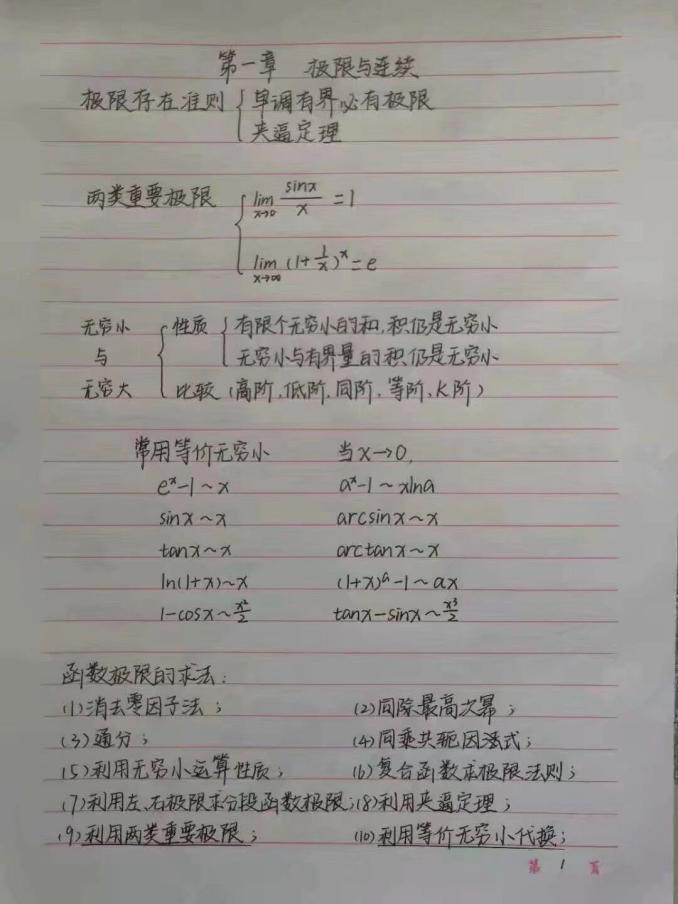 第一章 极限与连续
极限存在准则 { 单调有界必有极限
夹逼定理
两类重要极限 { lim x→0 sinx/x = 1
lim x→∞ (1+1/x)^x = e
无穷小 { 性质 { 有限个无穷小的和,积仍是无穷小
与 无穷小与有界量的积仍是无穷小
无穷大 比较(高阶,低阶,同阶,等阶,K阶)
常用等价无穷小 当x→0,
e^x-1~x a^x-1~xlna
sinx~x arcsinx~x
tanx~x arctanx~x
ln(1+x)~x (1+x)^a-1~ax
1-cosx~x²/2 tanx-sinx~x³/2
函数极限的求法:
(1)消去零因子法; (2)同除最高次幂;
(3)通分; (4)同乘共轭因法式;
(5)利用无穷小运算性质; (6)复合函数求极限法则;
(7)利用左、右极限求分段函数极限;(8)利用夹逼定理;
(9)利用两类重要极限; (10)利用等价无穷小代换;
第 1 页